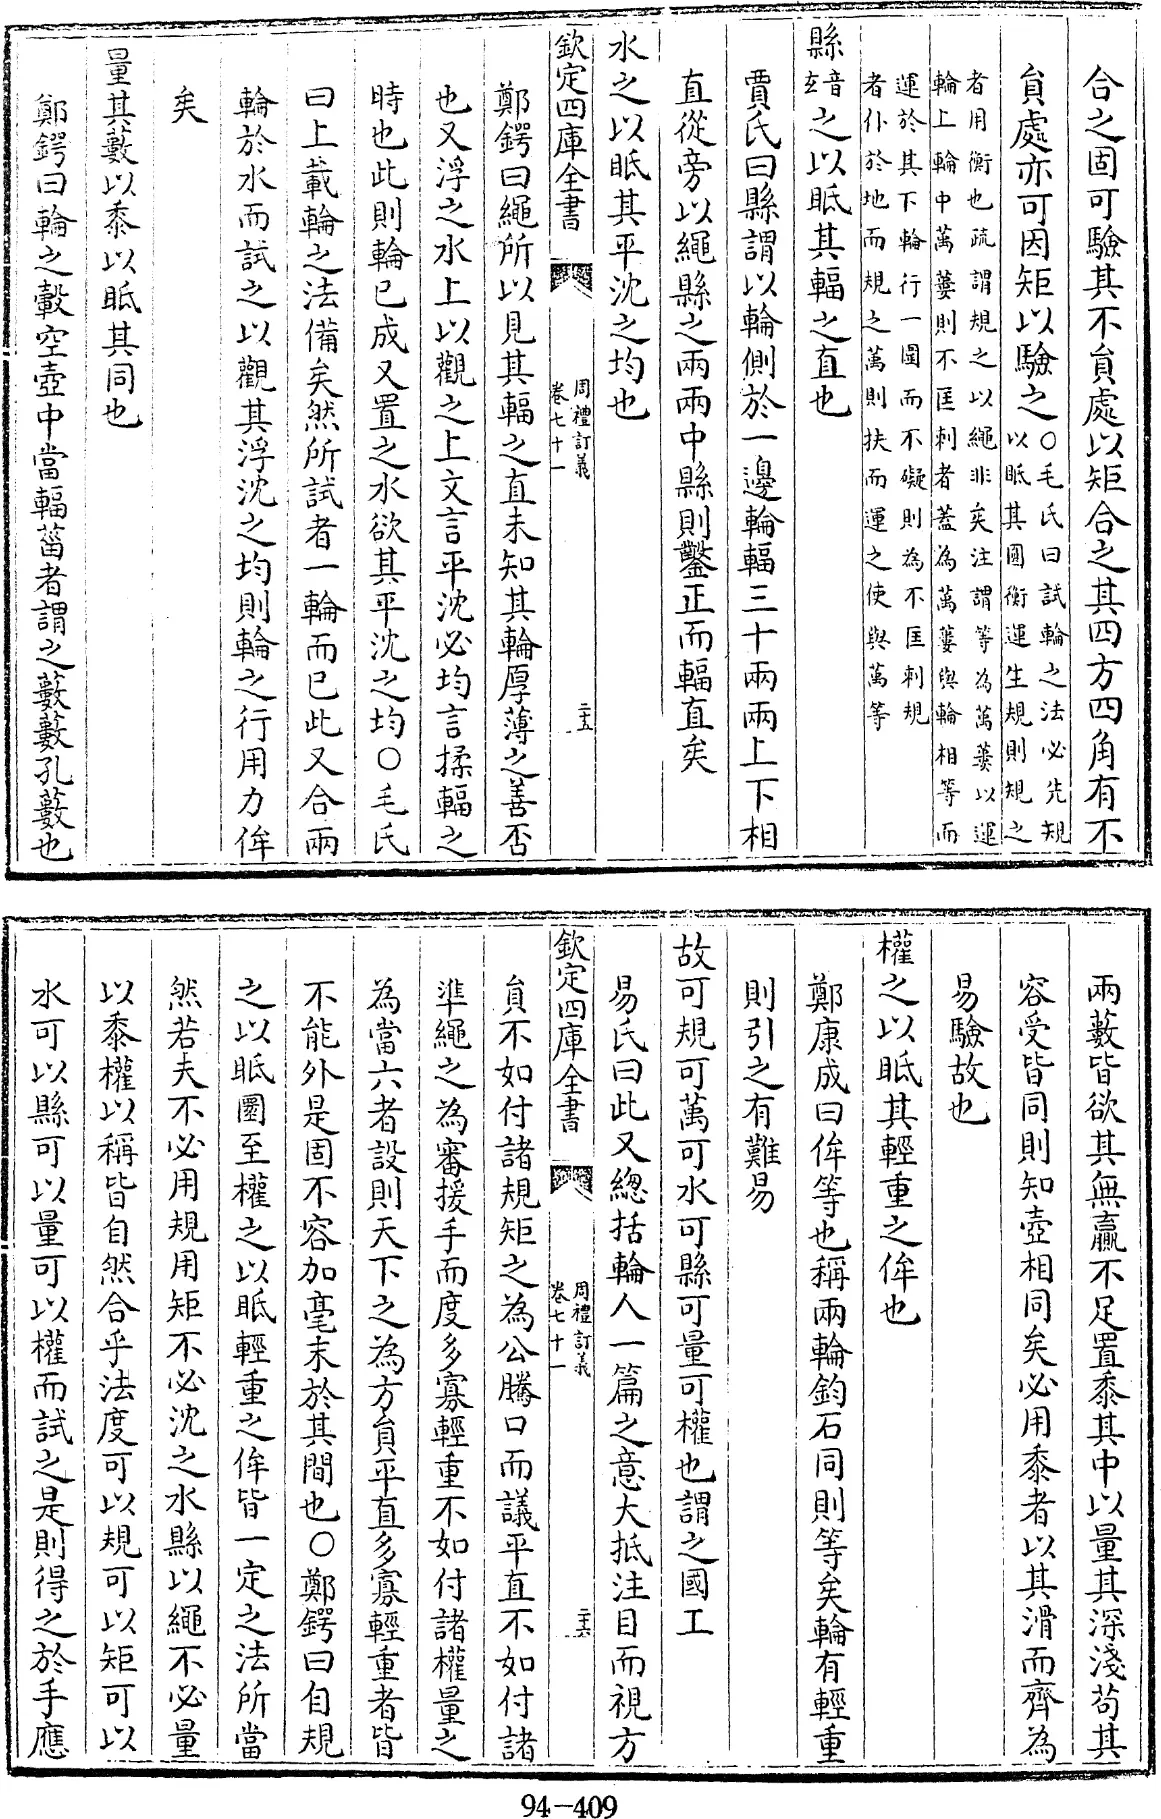 合之固可驗其不貟處以矩合之其四方四角有不
貟處亦可因矩以驗之○毛氏曰試輪之法必先規
以眡其圓衡運生規則規之
者用衡也疏謂規之以繩非矣注謂等為萬蔞以運
輪上輪中萬蔞則不匡刺者蓋為萬蔞與輪相等而
運於其下輪行一圜而不礙則為不匡刺規
者仆於地而規之萬則扶而運之使與萬等
縣音玄之以眡其輻之直也
賈氏曰縣謂以輪側於一邊輪輻三十兩兩上下相
直從旁以繩縣之兩兩中縣則鑿正而輻直矣
水之以眡其平沈之均也
欽定四庫全書 周禮訂義 卷七十一 二十五
鄭鍔曰繩所以見其輻之直未知其輪厚薄之善否
也又浮之水上以觀之上文言平沈必均言揉輻之
時也此則輪已成又置之水欲其平沈之均○毛氏
曰上載輪之法備矣然所試者一輪而已此又合兩
輪於水而試之以觀其浮沈之均則輪之行用力侔
矣
量其藪以黍以眡其同也
鄭鍔曰輪之轂空壺中當輻菑者謂之藪藪孔藪也
兩藪皆欲其無贏不足置黍其中以量其深淺茍其
容受皆同則知壺相同矣必用黍者以其滑而齊為
易驗故也
權之以眡其輕重之侔也
鄭康成曰侔等也稱兩輪鈞石同則等矣輪有輕重
則引之有難易
故可規可萬可水可縣可量可權也謂之國工
易氏曰此又總括輪人一篇之意大抵注目而視方
欽定四庫全書 周禮訂義 卷七十一 二十六
貟不如付諸規矩之為公騰口而議平直不如付諸
準繩之為審援手而度多寡輕重不如付諸權量之
為當六者設則天下之為方貟平直多寡輕重者皆
不能外是固不容加毫末於其間也○鄭鍔曰自規
之以眡圜至權之以眡輕重之侔皆一定之法所當
然若夫不必用規用矩不必沈之水縣以繩不必量
以黍權以稱皆自然合乎法度可以規可以矩可以
水可以縣可以量可以權而試之是則得之於手應
94-409